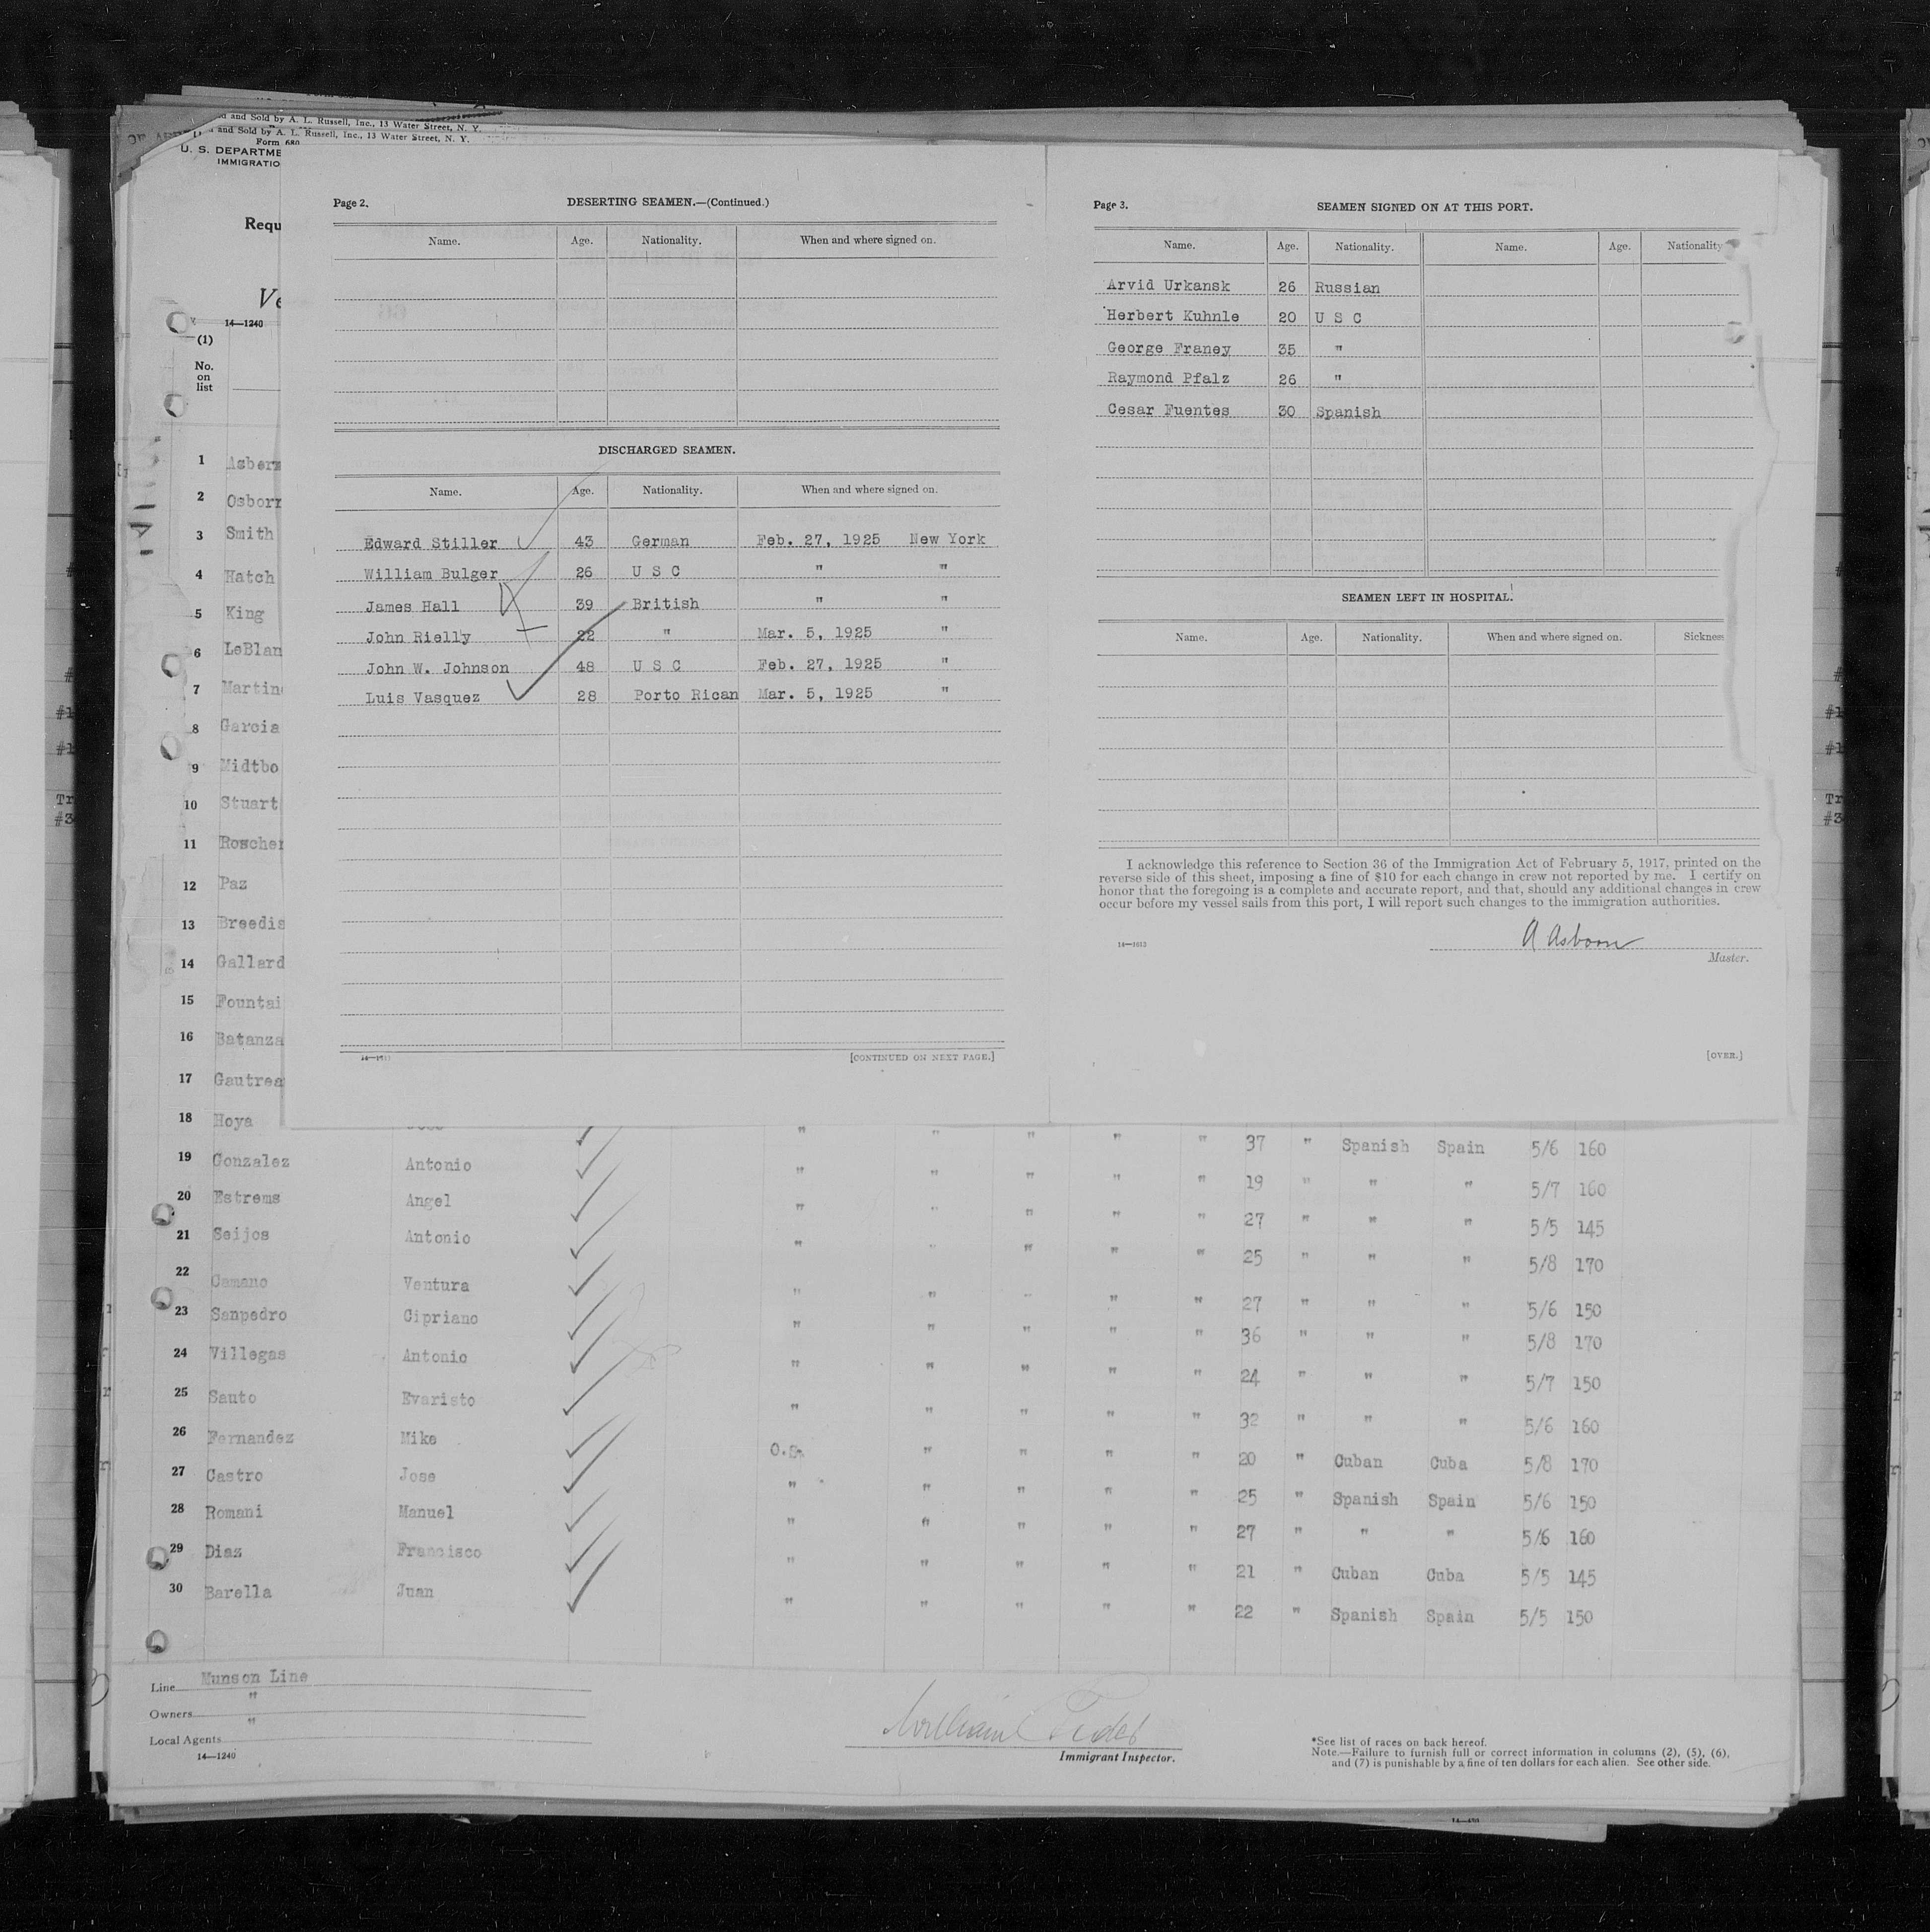 and Sold by A. L. Russell, Inc., 13 Water Street, N. Y.
and Sold by A. L. Russell, Inc., 13 Water Street, N. Y.
Form 680
U. S. DEPARTME
IMMIGRATIO
Requ
Ve
14—1240
(1)
No.
on
list
Page 2.
DESERTING SEAMEN.—(Continued.)
Name. Age. Nationality. When and where signed on.
DISCHARGED SEAMEN.
Name. Age. Nationality. When and where signed on.
Edward Stiller 43 German Feb. 27, 1925 New York
William Bulger 26 U S C " "
James Hall 39 British " "
John Rielly 22 " Mar. 5, 1925 "
John W. Johnson 48 U S C Feb. 27, 1925 "
Luis Vasquez 28 Porto Rican Mar. 5, 1925 "
[CONTINUED ON NEXT PAGE.]
Page 3.
SEAMEN SIGNED ON AT THIS PORT.
Name. Age. Nationality. Name. Age. Nationality
Arvid Urkansk 26 Russian
Herbert Kuhnle 20 U S C
George Franey 35 "
Raymond Pfalz 26 "
Cesar Fuentes 30 Spanish
SEAMEN LEFT IN HOSPITAL.
Name. Age. Nationality. When and where signed on. Sickness
I acknowledge this reference to Section 36 of the Immigration Act of February 5, 1917, printed on the
reverse side of this sheet, imposing a fine of $10 for each change in crew not reported by me. I certify on
honor that the foregoing is a complete and accurate report, and that, should any additional changes in crew
occur before my vessel sails from this port, I will report such changes to the immigration authorities.
14—1613
Master.
[OVER.]
1 Asber
2 Osbor
3 Smith
4 Hatch
5 King
6 LeBlan
7 Martin
8 Garcia
9 Midtbo
10 Stuart
11 Roscher
12 Paz
13 Breedis
14 Gallard
15 Fountai
16 Batanza
17 Gautrea
18 Hoya " " " " " 37 " Spanish Spain 5/6 160
19 Gonzalez Antonio " " " " " 19 " " " 5/7 160
20 Estrems Angel " " " " " 27 " " " 5/5 145
21 Seijos Antonio " " " " " 25 " " " 5/8 170
22 Camano Ventura " " " " " 27 " " " 5/6 150
23 Sanpedro Cipriano " " " " " 36 " " " 5/8 170
24 Villegas Antonio " " " " " 24 " " " 5/7 150
25 Sauto Evaristo " " " " " 32 " " " 5/6 160
26 Fernandez Mike O.S. " " " " 20 " Cuban Cuba 5/8 170
27 Castro Jose " " " " " 25 " Spanish Spain 5/6 150
28 Romani Manuel " " " " " 27 " " " 5/6 160
29 Diaz Francisco " " " " " 21 " Cuban Cuba 5/5 145
30 Barella Juan " " " " " 22 " Spanish Spain 5/5 150
Line Munson Line
Owners "
Local Agents "
14—1240
William
Immigrant Inspector.
*See list of races on back hereof.
Note.—Failure to furnish full or correct information in columns (2), (5), (6),
and (7) is punishable by a fine of ten dollars for each alien. See other side.